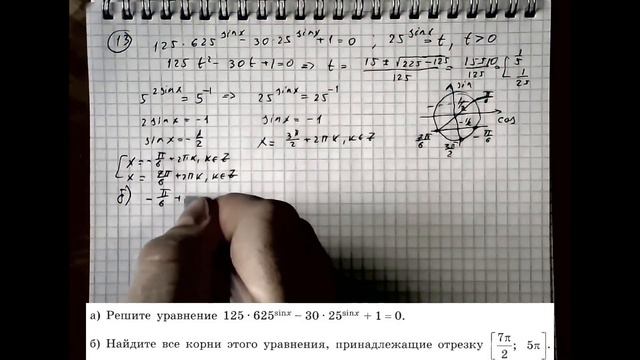 13
125·625^sinx - 30·25^sinx + 1 = 0 ; 25^sinx = t, t > 0
125 t² - 30t + 1 = 0 => t = (15 ± √(225-125))/125 = (15±10)/125 = [1/5 1/25
5^2sinx = 5^-1 => 25^sinx = 25^-1
sin
2 sinx = -1 sinx = -1
cos
sinx = -1/2 x = 3π/2 + 2πk, k∈Z
[x = -π/6 + 2πk, k∈Z
x = 7π/6 + 2πk, k∈Z
б) -π/6 +
а) Решите уравнение 125 · 625^sinx − 30 · 25^sinx + 1 = 0.
б) Найдите все корни этого уравнения, принадлежащие отрезку [7π/2; 5π].